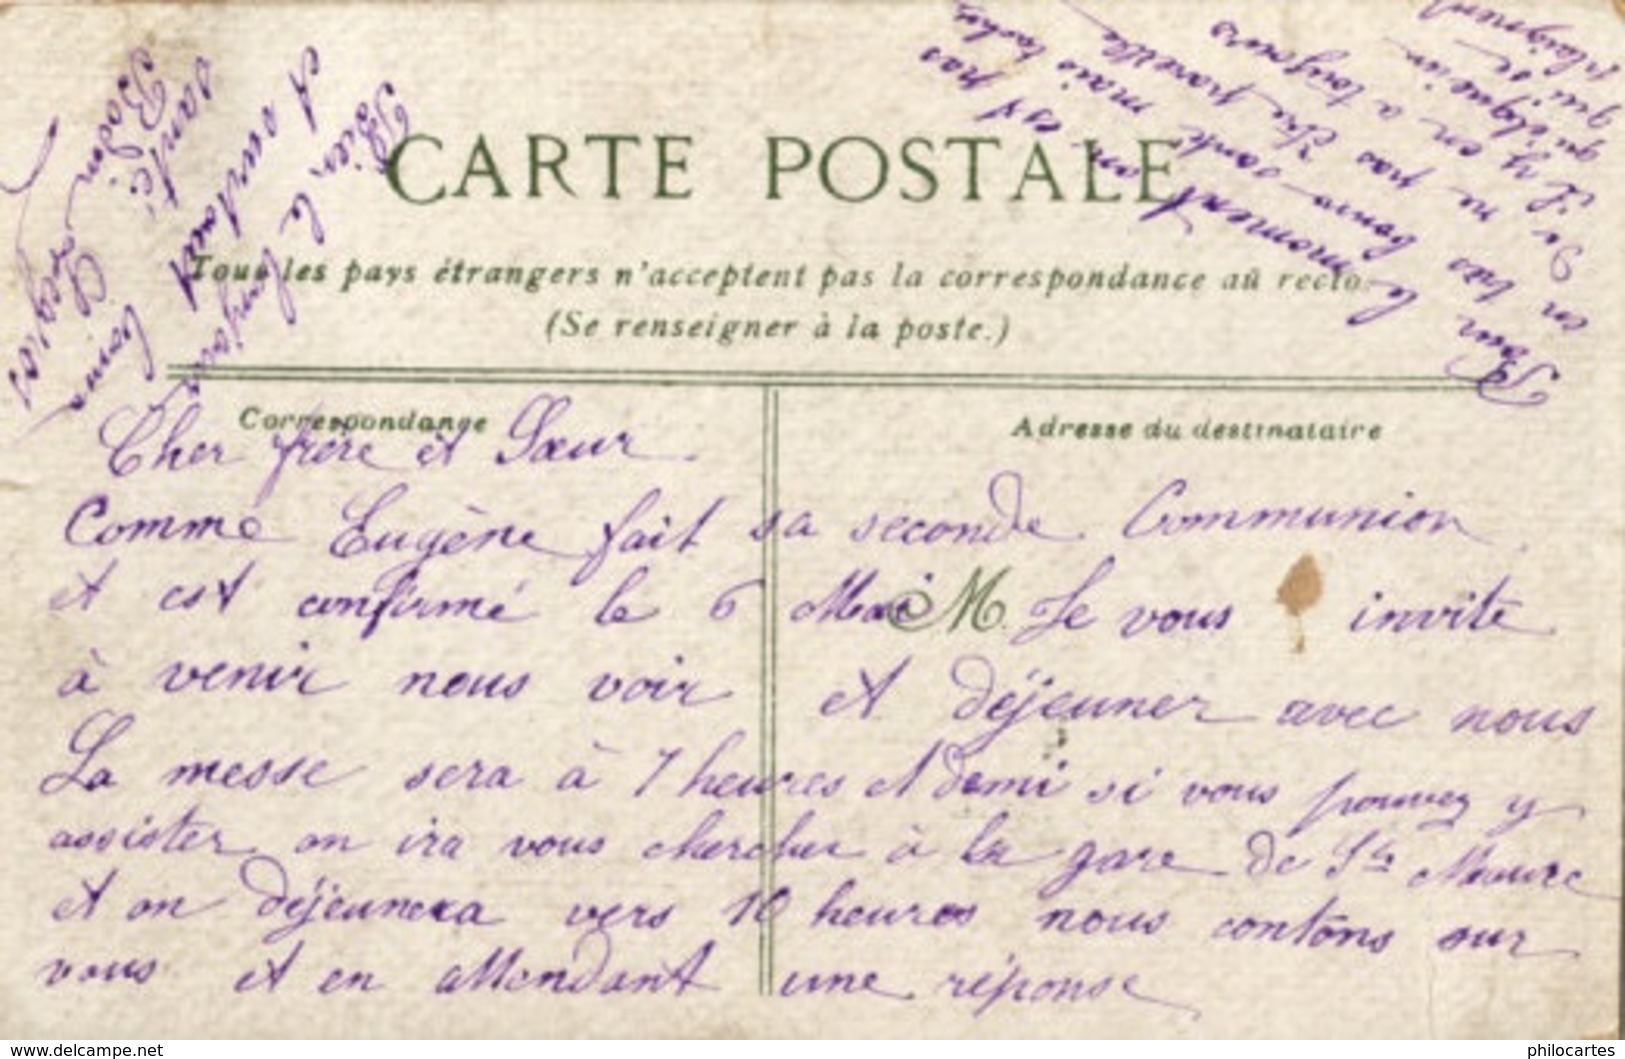 CARTE POSTALE
Tous les pays étrangers n'acceptent pas la correspondance au recto.
(Se renseigner à la poste.)
Correspondance
Adresse du destinataire
M
Cher frère et Sœur
Comme Eugène fait sa seconde Communion
et est confirmé le 6 Mai Je vous invite
à venir nous voir et déjeuner avec nous
La messe sera à 7 heures et demi si vous pouvez y
assister on ira vous chercher à la gare de Ste Maure
et on déjeunera vers 10 heures nous contons sur
vous et en attendant une réponse
Pour le moment on est pas
en bonne santé mais
pas
Il y en a toujours
qui
Bien le bonjour
A surtout bonne
santé
delcampe.net
philocartes